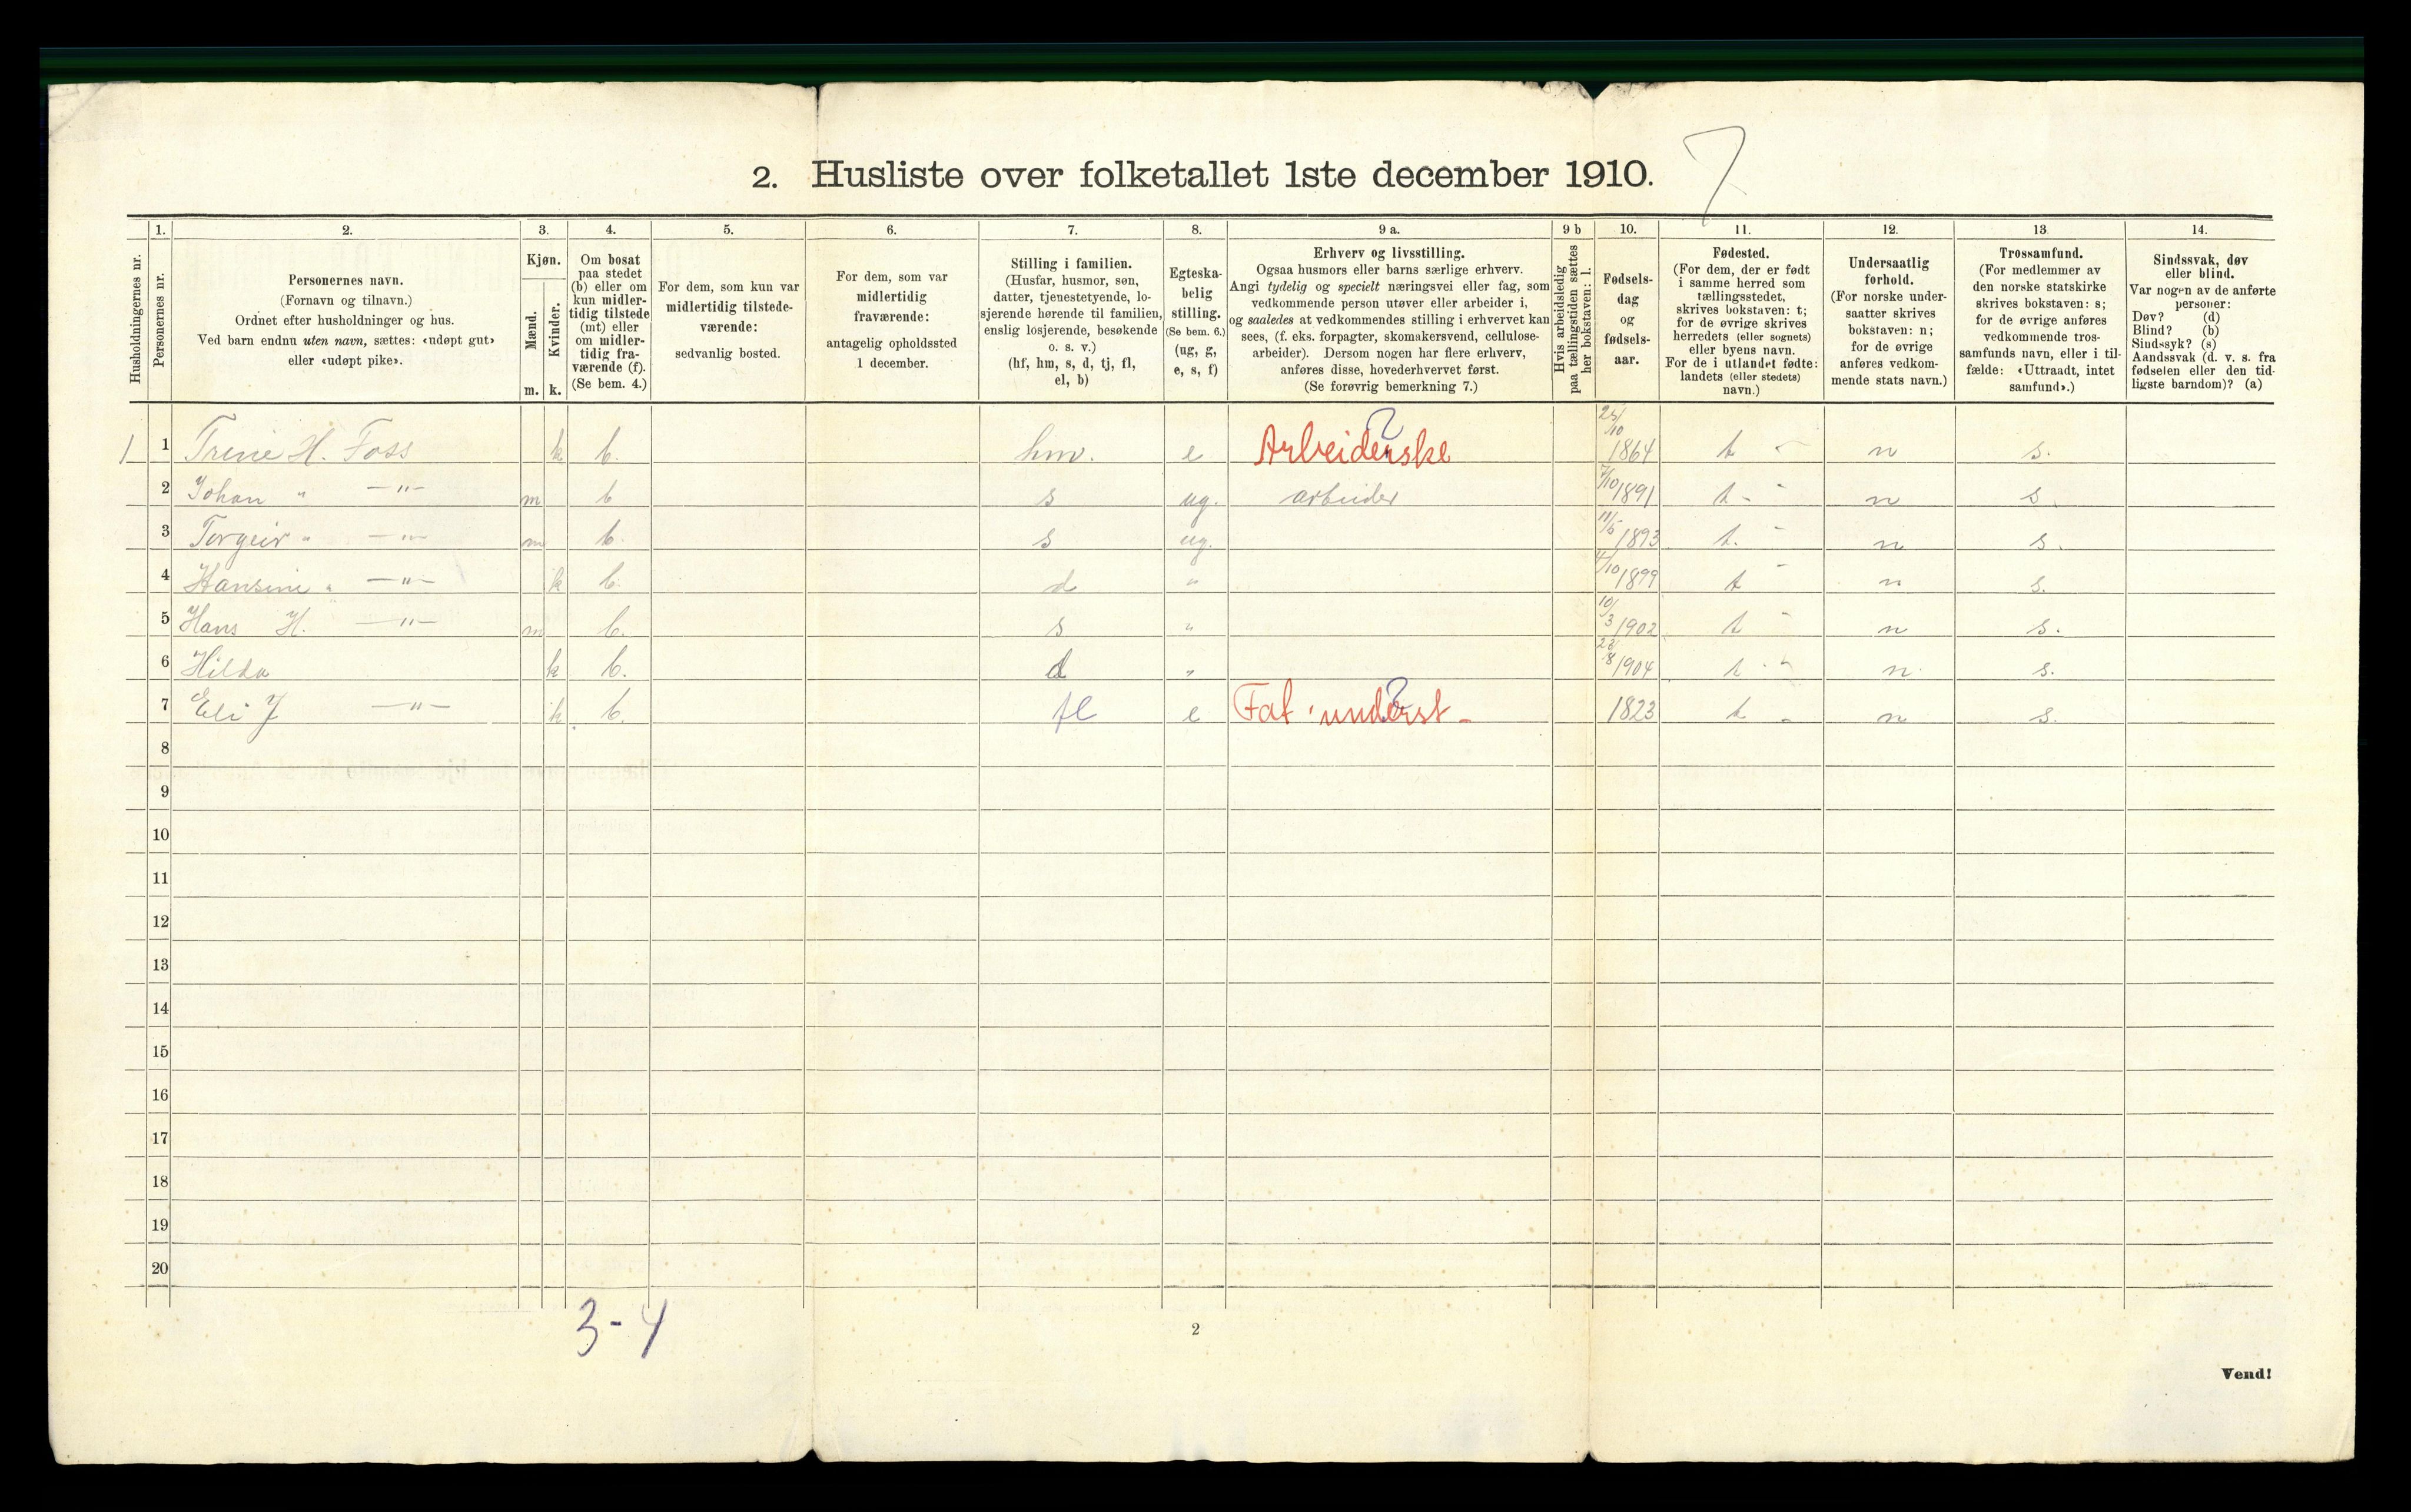 7
2. Husliste over folketallet 1ste december 1910.
Husholdningernes nr.
1. Personernes nr.
2. Personernes navn.
(Fornavn og tilnavn.)
Ordnet efter husholdninger og hus.
Ved barn endnu uten navn, sættes: «udøpt gut»
eller «udøpt pike».
3. Kjøn.
Mænd. Kvinder.
m. k.
4. Om bosat
paa stedet
(b) eller om
kun midler-
tidig tilstede
(mt) eller
om midler-
tidig fra-
værende (f).
(Se bem. 4.)
5. For dem, som kun var
midlertidig tilstede-
værende:
sedvanlig bosted.
6. For dem, som var
midlertidig
fraværende:
antagelig opholdssted
1 december.
7. Stilling i familien.
(Husfar, husmor, søn,
datter, tjenestetyende, lo-
sjerende hørende til familien,
enslig losjerende, besøkende
o. s. v.)
(hf, hm, s, d, tj, fl,
el, b)
8. Egteska-
belig
stilling.
(Se bem. 6.)
(ug, g,
e, s, f)
9 a. Erhverv og livsstilling.
Ogsaa husmors eller barns særlige erhverv.
Angi tydelig og specielt næringsvei eller fag, som
vedkommende person utøver eller arbeider i,
og saaledes at vedkommendes stilling i erhvervet kan
sees, (f. eks. forpagter, skomakersvend, cellulose-
arbeider). Dersom nogen har flere erhverv,
anføres disse, hovederhvervet først.
(Se forøvrig bemerkning 7.)
9 b Hvis arbeidsledig
paa tællingstiden sættes
her bokstaven: l.
10. Fødsels-
dag
og
fødsels-
aar.
11. Fødested.
(For dem, der er født
i samme herred som
tællingsstedet,
skrives bokstaven: t;
for de øvrige skrives
herredets (eller sognets)
eller byens navn.
For de i utlandet fødte:
landets (eller stedets)
navn.)
12. Undersaatlig
forhold.
(For norske under-
saatter skrives
bokstaven: n;
for de øvrige
anføres vedkom-
mende stats navn.)
13. Trossamfund.
(For medlemmer av
den norske statskirke
skrives bokstaven: s;
for de øvrige anføres
vedkommende tros-
samfunds navn, eller i til-
fælde: «Uttraadt, intet
samfund».)
14. Sindssvak, døv
eller blind.
Var nogen av de anførte
personer:
Døv? (d)
Blind? (b)
Sindssyk? (s)
Aandssvak (d. v. s. fra
fødselen eller den tid-
ligste barndom)? (a)
1 1 Trine H. Foss k b. hm. e Arbeiderske ? 1864 t - n s.
2 Johan " —"— m b s ug. arbeider 7/10 1891 t - n s.
3 Torgeir " —"— m b. s ug. 11/5 1893 t. - n s.
4 Hansine " —"— k b d " 1899 t - n s.
5 Hans H. —"— m b. s " 10/3 1902 t - n s.
6 Hilda k b. d " 1904 t - n s.
7 Eli J —"— k b. fl e Fat. underst - ? 1823 t - n s.
8
9
10
11
12
13
14
15
16
17
18
19
20
3-4
2
Vend!